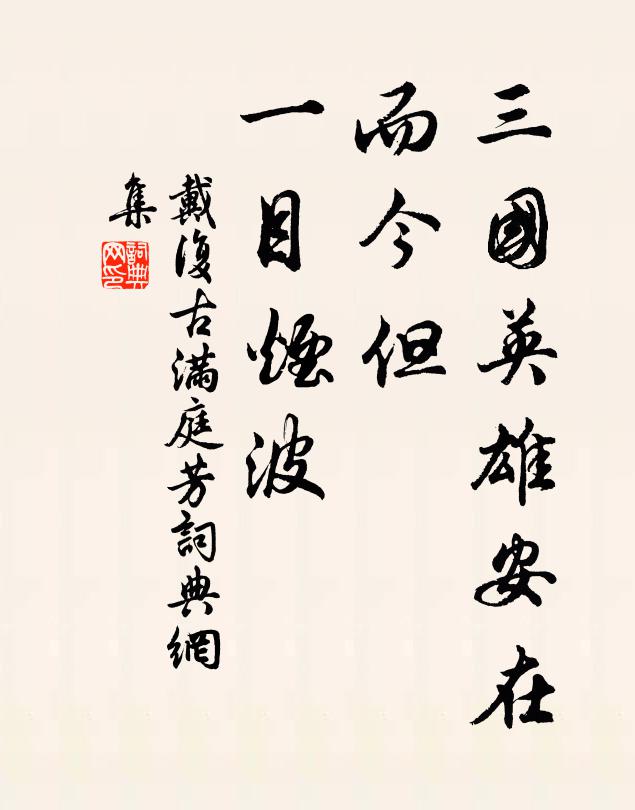 三國英雄安在
而今但
一目煙波
戴復古滿庭芳詞典網
集
詞典網印